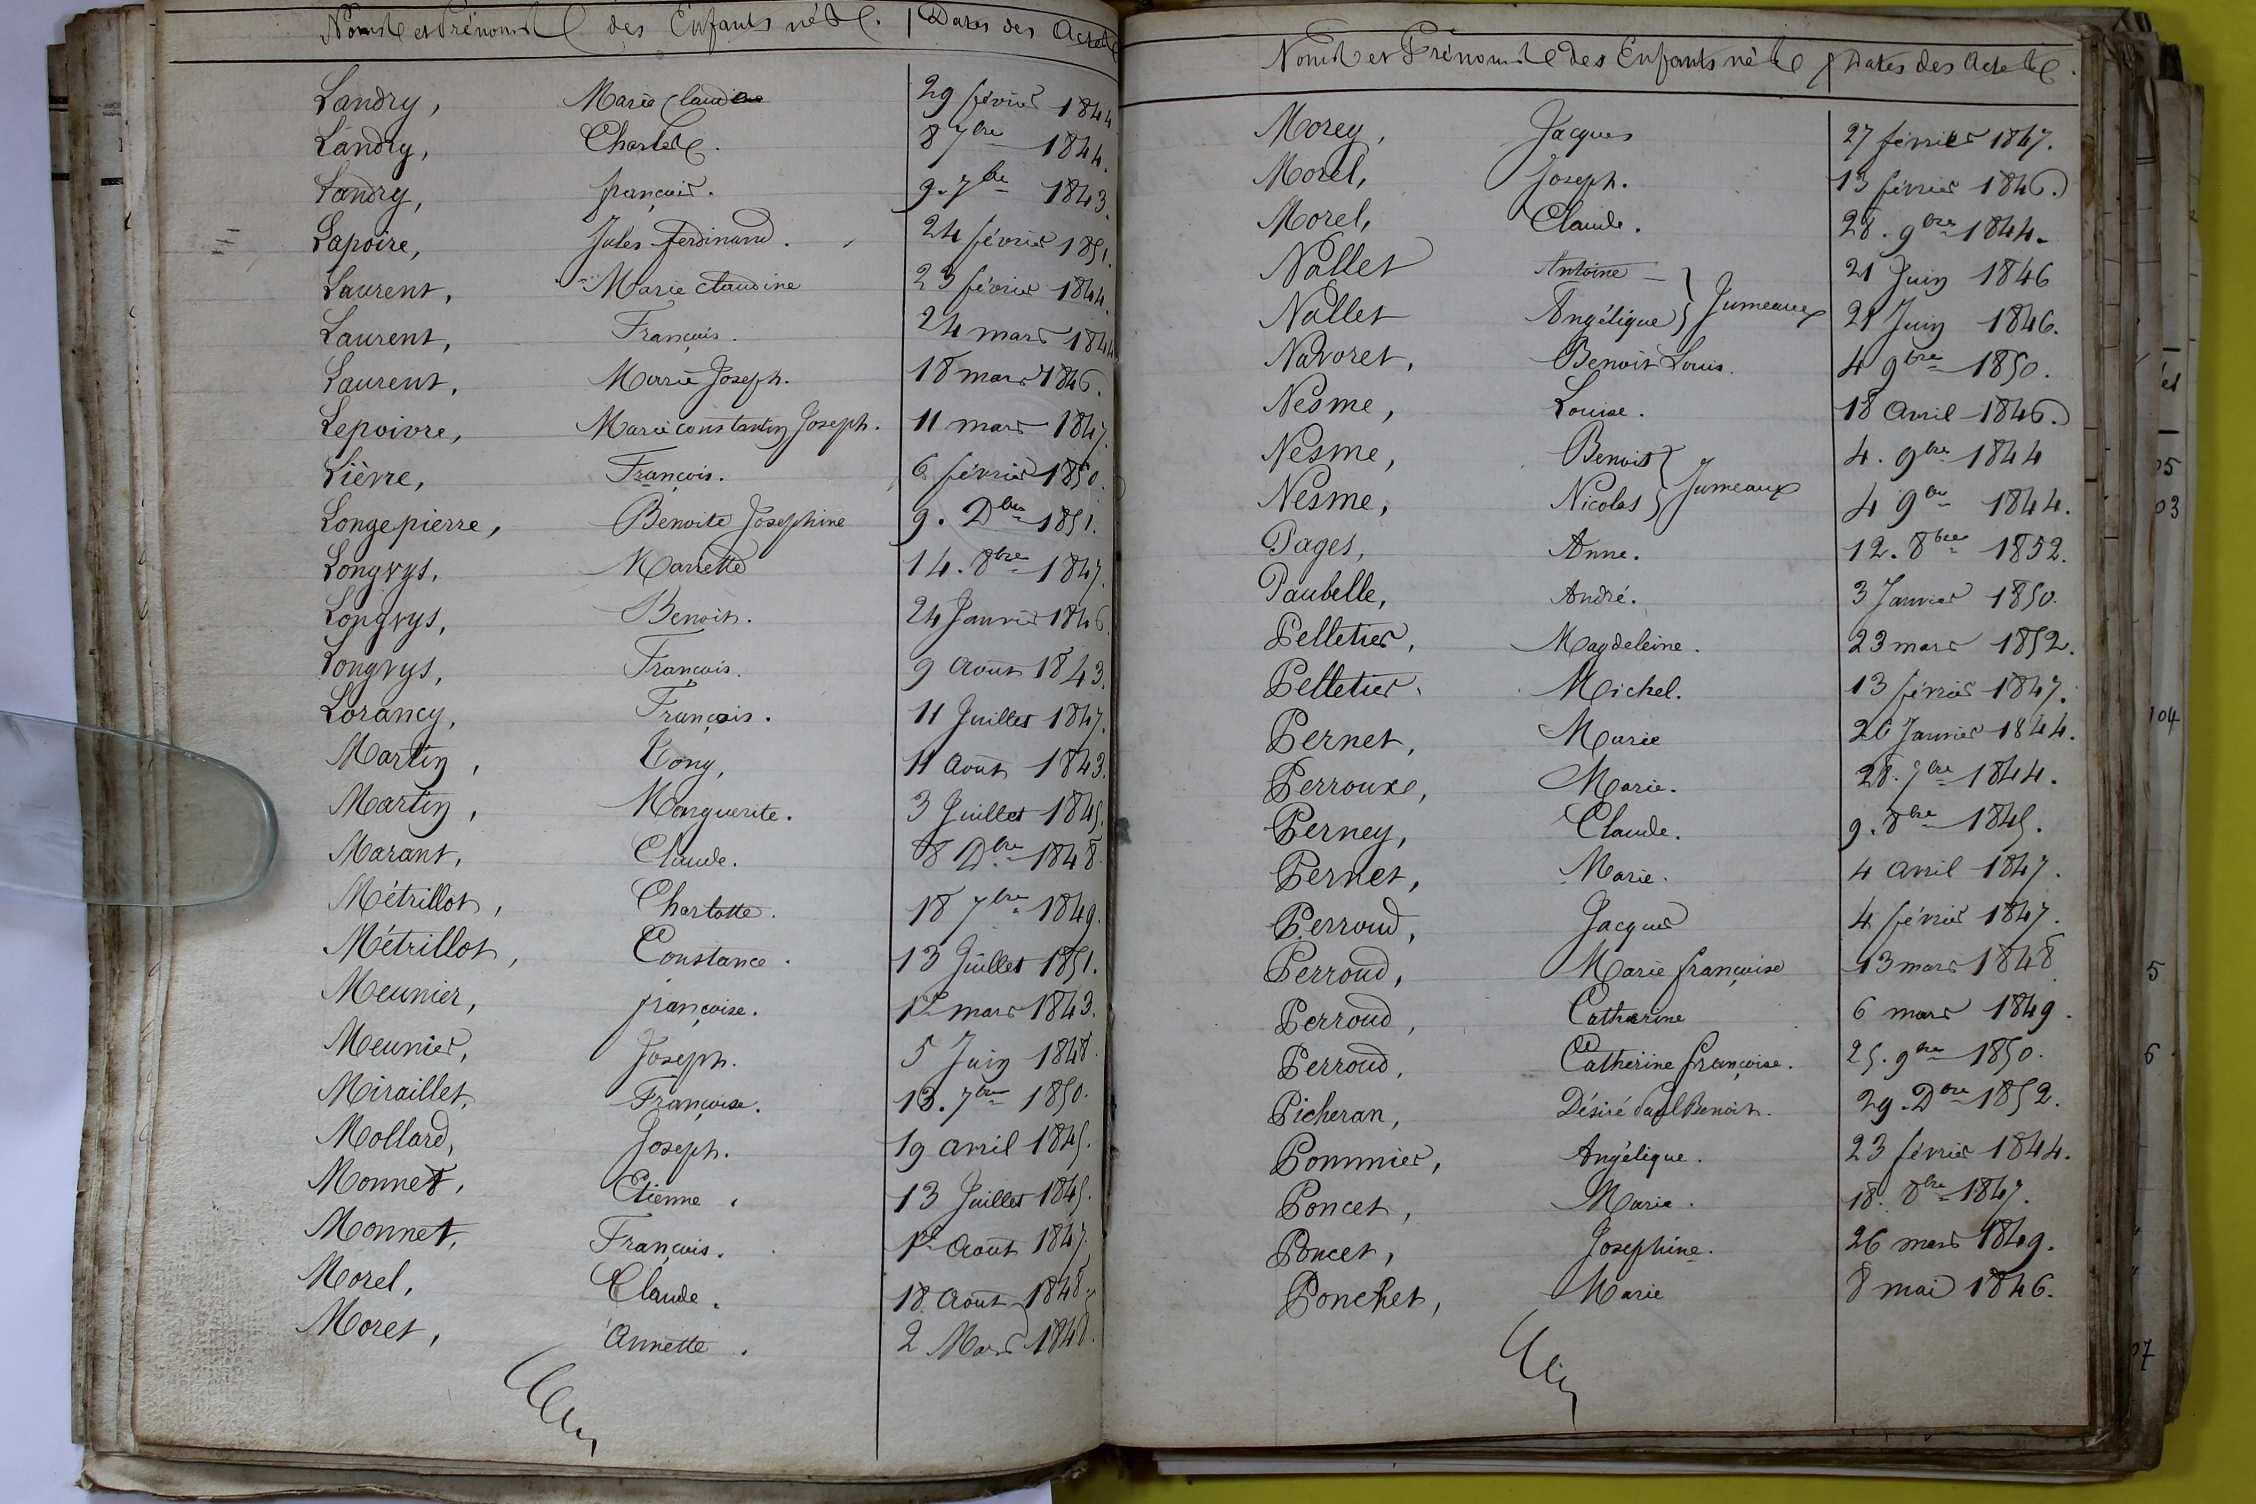 Noms et Prénoms des Enfants nés. Dates des Actes
Landry, Marie Claudine 29 février 1844
Landry, Charles. 8 7bre 1844.
Landry, françois. 9. 7bre 1843.
Lapoire, Jules ferdinand. 24 février 1851.
Laurent, Marie Claudine 23 février 1844.
Laurent, François. 24 mars 1844
Laurent, Marie Joseph. 18 mars 1846.
Lepoivre, Marie constantin Joseph. 11 mars 1847.
Lièvre, François. 6 février 1850.
Longepierre, Benoite Josephine 9. Dbre 1851.
Longvys, Mariette 14. 8bre 1847.
Longvys, Benoit. 24 Janvier 1846.
Longvys, François. 9 Août 1843.
Lorancy, François. 11 Juillet 1847.
Martin, Tony, 11 Août 1843.
Martin, Marguerite. 3 Juillet 1845.
Marant, Claude. 8 Dbre 1848.
Métrillot, Charlotte. 18 7bre 1849.
Métrillot, Constance. 13 Juillet 1851.
Meunier, françoise. 1er mars 1843.
Meunier, Joseph. 5 Juin 1848.
Miraillet, Françoise. 13. 7bre 1850.
Mollard, Joseph. 19 avril 1845.
Monnet, Etienne. 13 Juillet 1845.
Monnet, François. 1er Août 1847.
Morel, Claude. 18. Août 1848.
Moret, Annette. 2 Mars 1848.
Noms et Prénoms des Enfants nés Dates des Actes.
Morey, Jacques 27 février 1847.
Morel, Joseph. 13 février 1846.
Morel, Claude. 28. 9bre 1844.
Nallet Antoine 21 Juin 1846
Nallet Angélique } Jumeaux 21 Juin 1846.
Navoret, Benoit Louis. 4 9bre 1850.
Nesme, Louise. 18 Avril 1846.
Nesme, Benoit 4. 9bre 1844
Nesme, Nicolas } Jumeaux 4 9bre 1844.
Pages, Anne. 12. 8bre 1852.
Paubelle, André. 3 Janvier 1850.
Pelletier, Magdeleine. 23 mars 1852.
Pelletier. Michel. 13 février 1847.
Pernet, Marie 26 Janvier 1844.
Perroux, Marie. 28. 7bre 1844.
Perney, Claude. 9. 8bre 1845.
Pernet, Marie. 4 avril 1847.
Perroud, Jacques 4 février 1847.
Perroud, Marie françoise 13 mars 1848
Perroud, Catherine 6 mars 1849.
Perroud, Catherine françoise. 25. 9bre 1850.
Picheran, Désiré Paul Benoit. 29. Dbre 1852.
Pommier, Angélique. 23 février 1844.
Poncet, Marie. 18. 8bre 1847.
Poncet, Josephine. 26 mars 1849.
Ponchet, Marie 8 mai 1846.